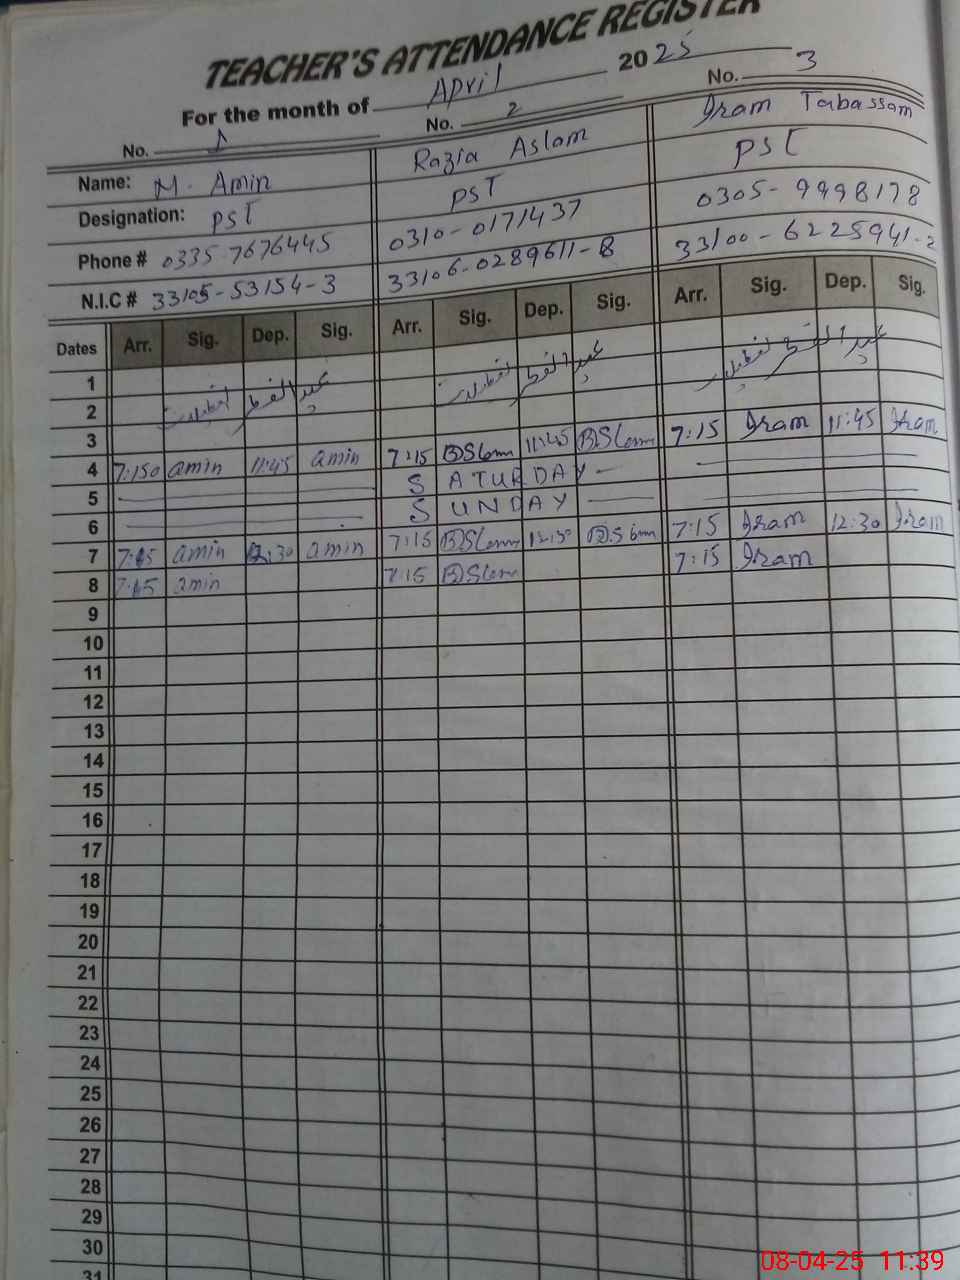 TEACHER'S ATTENDANCE REGISTER
For the month of April 2025
No. 1 No. 2 No. 3
Name: M. Amin Razia Aslam Iram Tabassam
Designation: PST PST PST
Phone # 0335-7676445 0310-0171437 0305-9998178
N.I.C # 33105-53154-3 33106-0289611-8 33100-6225941-2
Dates Arr. Sig. Dep. Sig. Arr. Sig. Dep. Sig. Arr. Sig. Dep. Sig.
1
2 عید الفطر تعطیلات عید الفطر تعطیلات عید الفطر تعطیلات
3
4 7:15 amin 11:45 amin 7:15 11:45 7:15 Iram 11:45 Iram
5 SATURDAY
6 SUNDAY
7 7:15 amin 12:30 amin 7:15 7:15 Iram 12:30 Iram
8 7:15 amin 7:15 7:15 Iram
9
10
11
12
13
14
15
16
17
18
19
20
21
22
23
24
25
26
27
28
29
30
31
08-04-25 11:39